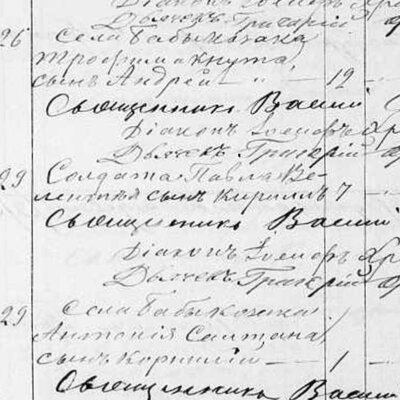 Діаконъ Іосифъ
Дьячек Григорій
26 Села Бабы
Трофима Кнута
сынъ Андрей — " — 12 —
Священникъ Васил
Діаконъ Іосифъ
Дьячек Григорій
29 Солдата Павла Ве-
сынъ Кириллъ 7 —
Священникъ Василій
Діаконъ Іосифъ
Дьячек Григорій
29 Села
Антонія Салтана
сынъ Корнилій — 1 —
Священникъ Васил